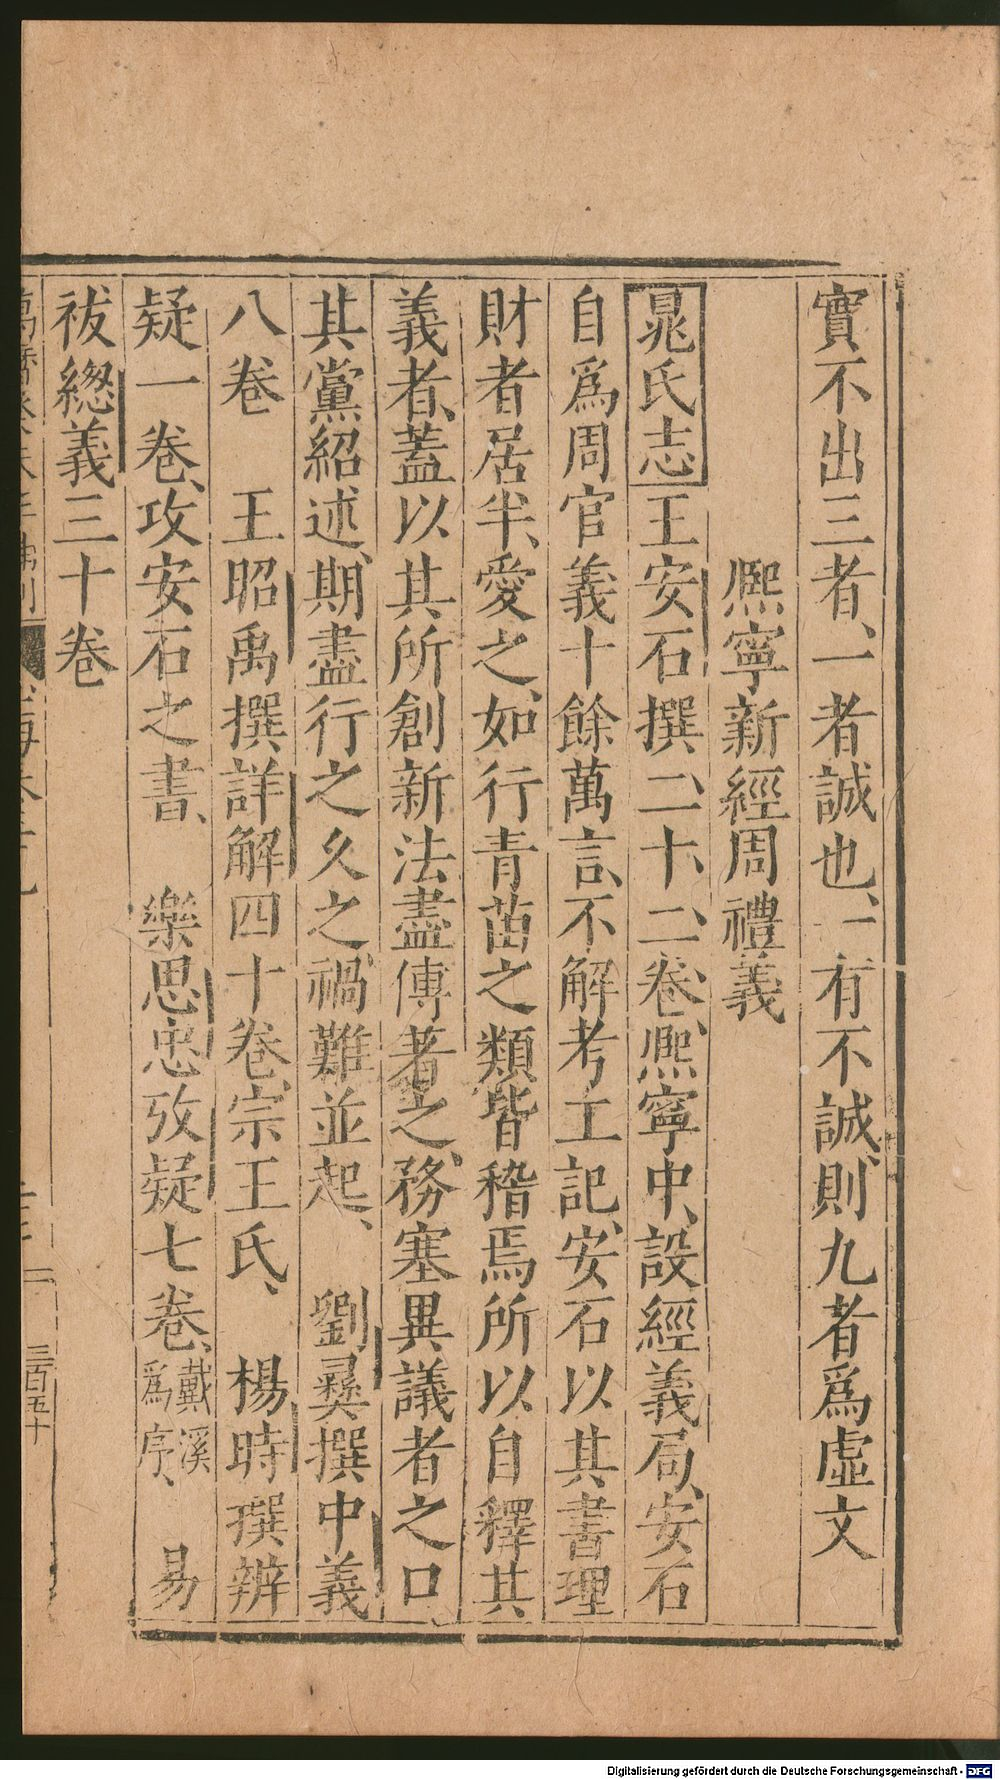 實不出三者、一者誠也、一有不誠、則九者爲虛文
熈寧新經周禮義
晁氏志王安石撰二十二卷、熈寧中、設經義局、安石
自爲周官義十餘萬言、不解考工記、安石以其書理
財者居半、愛之、如行青苗之類皆稽焉所以自釋其
義者、蓋以其所創新法盡傅著之、務塞異議者之口、
其黨紹述、期盡行之久之、禍難並起、 劉彝撰中義
八卷 王昭禹撰詳解四十卷、宗王氏、 楊時撰辨
疑一卷、攻安石之書、 樂思忠攷疑七卷、戴溪爲序、 易
祓總義三十卷
三百五十
Digitalisierung gefördert durch die Deutsche Forschungsgemeinschaft - DFG